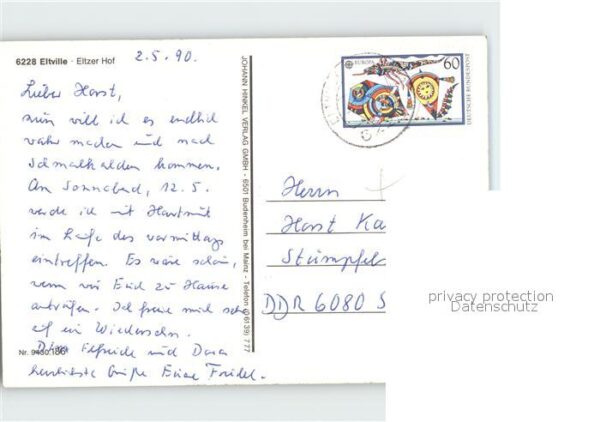 6228 Eltville · Eltzer Hof
2.5.90.
Lieber Horst,
nun will ich es endlich
wahr machen und nach
Schmalkalden kommen.
Am Sonnabend, 12.5.
werde ich mit Hartmut
im Laufe des vormittags
eintreffen. Es wäre schön,
wenn wir Euch zu Hause
anträfen. Ich freue mich sehr
auf ein Wiedersehn.
Elfriede und
herzlichste Grüße Eure Friedel.
Nr. 9430.186
JOHANN HINKEL VERLAG GMBH - 6501 Budenheim bei Mainz - Telefon (0 61 39) 7 77
EUROPA 60
DEUTSCHE BUNDESPOST
Herrn
Horst Ka
Stümpfel
DDR 6080 S
privacy protection
Datenschutz